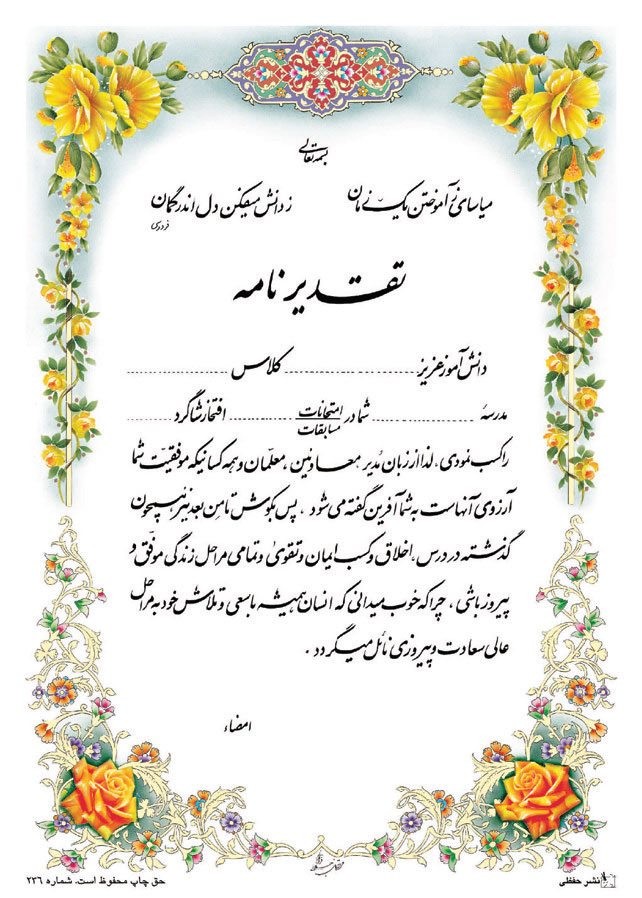 بسمه تعالی
میاسای ز آموختن یک زمان ز دانش میفکن دل اندر گمان
فردوسی
تقدیر نامه
دانش آموز عزیز ........ کلاس ........
مدرسه ........ شما در امتحانات ........ افتخار شاگرد ........
مسابقات
را کسب نمودی، لذا از زبان مدیر معاونین، معلمان و همه کسانیکه موفقیت شما
آرزوی آنهاست به شما آفرین گفته می شود، پس بکوش تا من بعد نیز همچون
گذشته در درس، اخلاق و کسب ایمان و تقوی و تمامی مراحل زندگی موفق و
پیروز باشی، چرا که خوب میدانی که انسان همیشه با سعی و تلاش خود به مراحل
عالی سعادت و پیروزی نائل میگردد.
امضاء
نشر حفظی
حق چاپ محفوظ است. شماره ۲۳۶